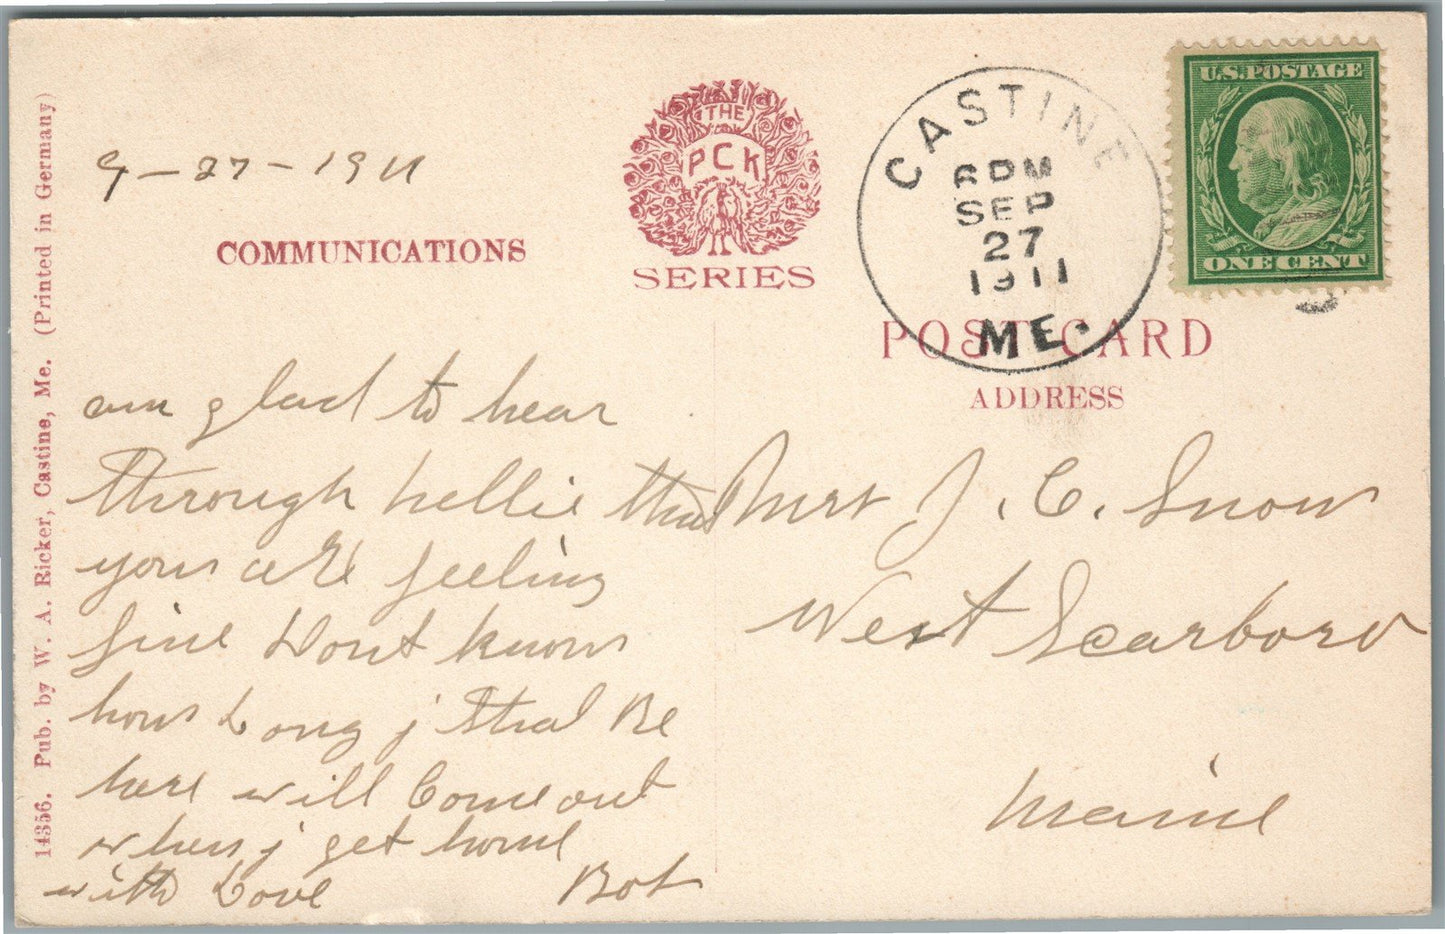 14356. Pub. by W. A. Ricker, Castine, Me. (Printed in Germany)
9-27-1911
COMMUNICATIONS
THE
PCK
SERIES
CASTINE
6 PM
SEP
27
1911
ME.
U.S. POSTAGE
ONE CENT
POST CARD
ADDRESS
am glad to hear
through Nellie that
you are feeling
fine Dont know
how Long j shal Be
here will Come out
when j get home
with Love
J. C. Snow
West Scarboro
Maine